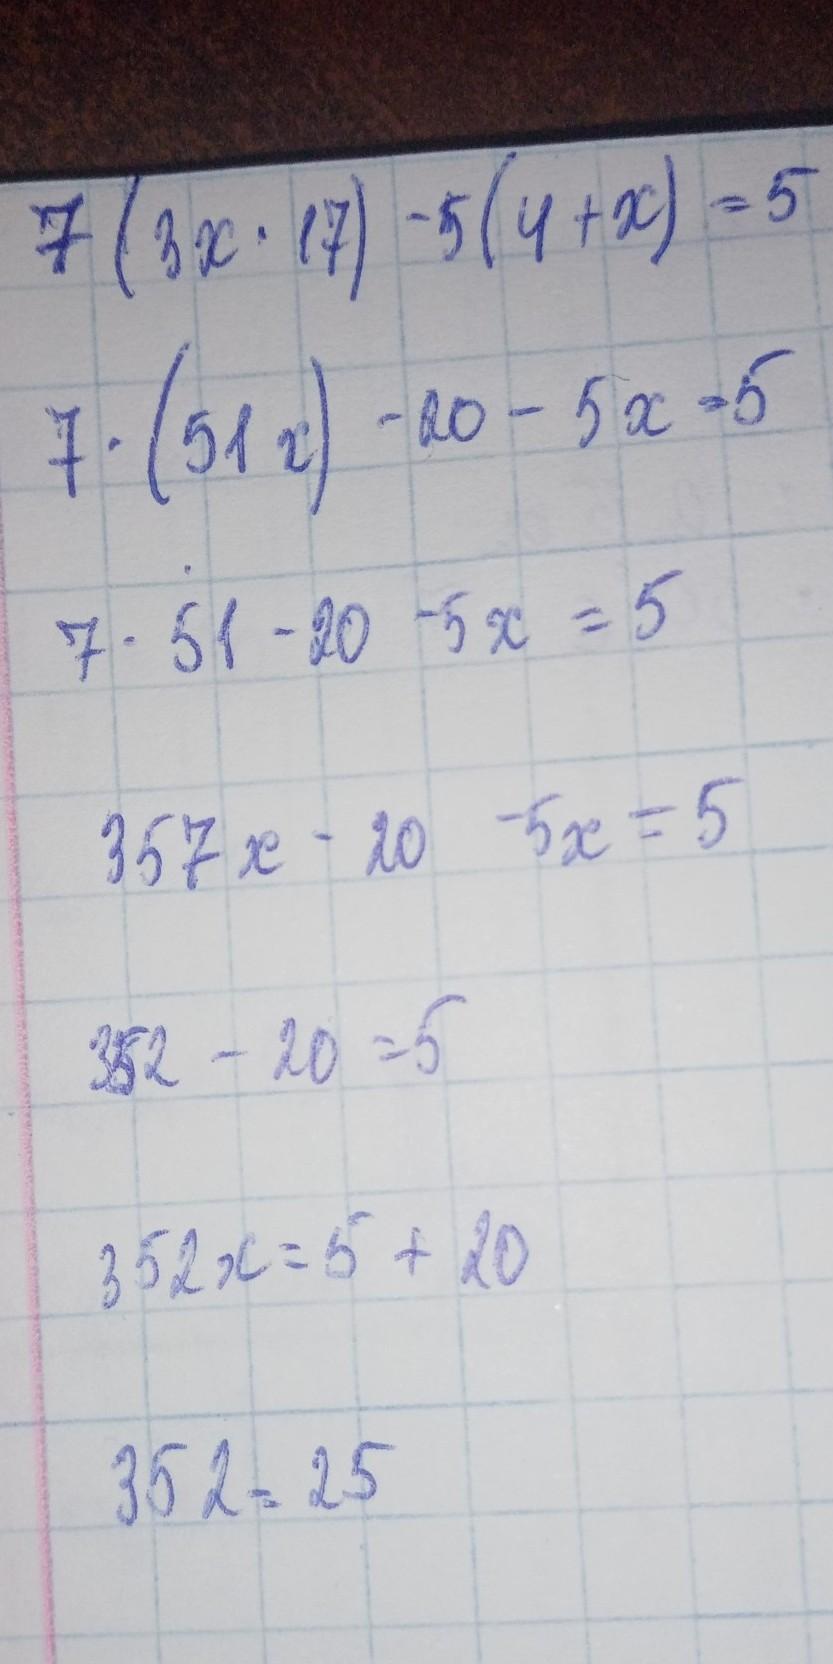 7(3x·17)-5(4+x)=5
7·(51x)-20-5x=5
7·51-20-5x=5
357x-20-5x=5
352-20=5
352x=5+20
352=25